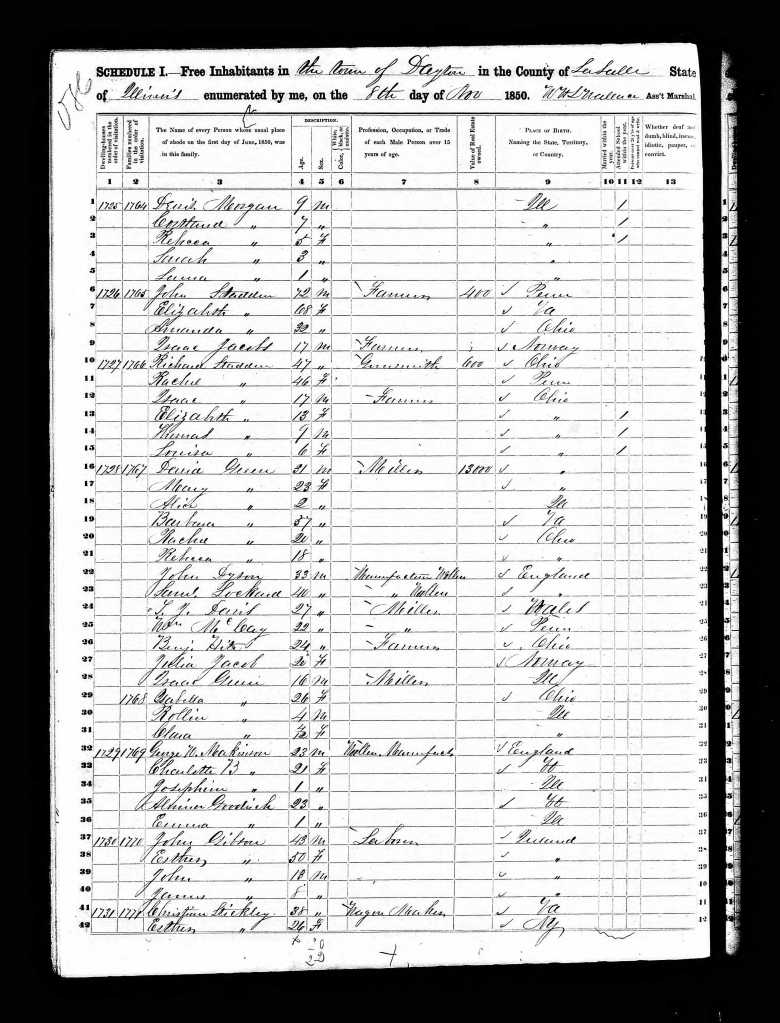 SCHEDULE I.—Free Inhabitants in the town of Dayton in the County of LaSalle State
of Illinois enumerated by me, on the 8th day of Nov 1850. Ass't Marshal
DESCRIPTION.
Dwelling-houses numbered in the order of visitation. Families numbered in the order of visitation. The Name of every Person whose usual place of abode on the first day of June, 1850, was in this family. Age. Sex. Color, White, black, or mulatto. Profession, Occupation, or Trade of each Male Person over 15 years of age. Value of Real Estate owned. PLACE OF BIRTH. Naming the State, Territory, or Country. Married within the year. Attended School within the year. Whether deaf and dumb, blind, insane, idiotic, pauper, or convict.
1 2 3 4 5 6 7 8 9 10 11 12 13
1 1725 1764 Morgan 9 M Ill 1
2 Cortland " 7 " " 1
3 Rebecca " 5 F " 1
4 Sarah " 3 " "
5 " 1 " "
6 1726 1765 John Stadden 72 M Farmer 400 Penn
7 Elizabeth " 68 F Va
8 Amanda " 32 " Ohio
9 Isaac Jacobs 17 M Farmer Norway
10 1727 1766 Richard Stadden 47 " Gunsmith 600 Ohio
11 Rachel " 46 F Penn
12 Isaac " 17 M Farmer Ohio
13 Elizabeth " 13 F " 1
14 Thomas " 9 M " 1
15 Louisa " 6 F " 1
16 1728 1767 David Green 31 M Miller 13000 "
17 Mary " 23 F "
18 Alice " 2 " Ill
19 Barbara " 57 " Va
20 Rachel " 20 " Ohio
21 Rebecca " 18 " "
22 John Dyson 33 M Manufacturer Wollen England
23 Saml Lockard 40 " " Wollen "
24 Davis 27 " Miller Wales
25 Wm McCay 22 " " Penn
26 Benj 24 " Farmer Ohio
27 Julia Jacob 20 F Norway
28 Isaac Green 16 M Miller Ill
29 1768 Isabella " 26 F Ohio
30 Rollin " 4 M Ill
31 Clara " F "
32 1729 1769 George W. Makinson 23 M Wollen Manufact England
33 Charlotte B " 21 F Vt
34 Josephine " 1 " Ill
35 Goodrich 23 " Vt
36 Emma " 1 " Ill
37 1730 1770 John Gibson 43 M Laborer Ireland
38 Esther " 50 F "
39 John " 13 M "
40 James " 8 " "
41 1731 1771 Christian Stickley 38 " Wagon Maker Va
42 Esther " 26 F NY